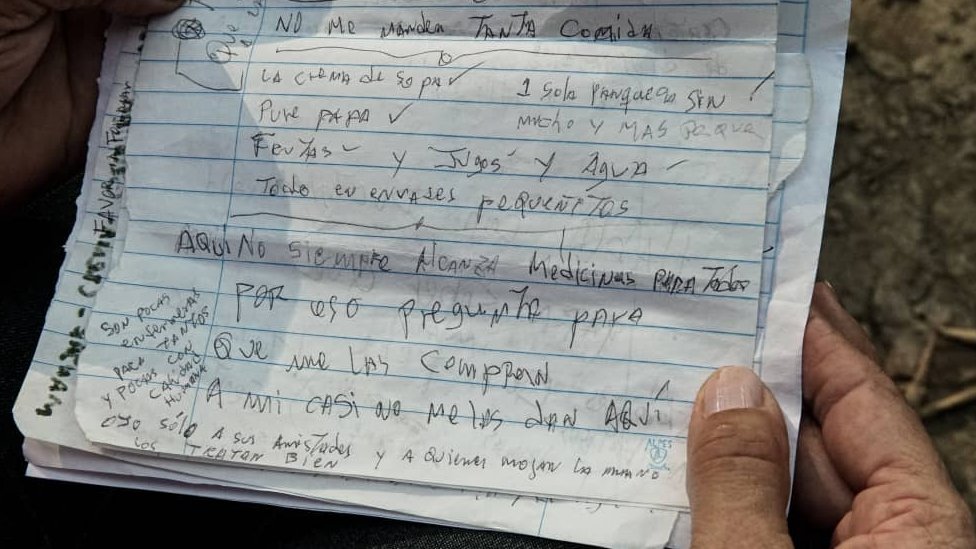 Que
NO Me manden TANTA Comida
LA CREMA de SOPA ✓
1 Solo PANqueque SIN
Pure PAPA ✓
mucho y MAS
FRUTAS y Jugos y Agua
Todo en envases pequeñitos
AQUI NO Siempre Alcanza Medicinas PARA Todos
POR eso pregunta para
Que me las COMPRAN
A mi CASI NO Me las dan AQUÍ
SON POCAS
enfermeras
PARA TANTOS
y POCAS CON
CALIDAD
HUMANA
FAVOR
solo A sus Amistades y A quienes mojan la mano
los TRATAN BIEN
ALPES